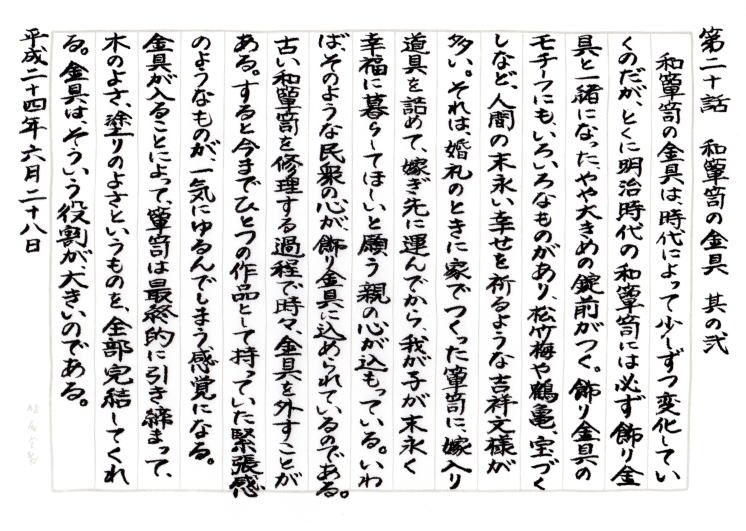 第二十話　和簞笥の金具　其の弐
和簞笥の金具は、時代によって少しずつ変化してい
くのだが、とくに明治時代の和簞笥には必ず飾り金
具と一緒になった、やや大きめの錠前がつく。飾り金具の
モチーフにも、いろいろなものがあり、松竹梅や鶴亀、宝づく
しなど、人間の末永い幸せを祈るような吉祥文様が
多い。それは、婚礼のときに家でつくった簞笥に、嫁入り
道具を詰めて、嫁ぎ先に運んでから、我が子が末永く
幸福に暮らしてほしいと願う親の心が込もっている。いわ
ば、そのような民衆の心が、飾り金具に込められているのである。
古い和簞笥を修理する過程で時々、金具を外すことが
ある。すると今までひとつの作品として持っていた緊張感
のようなものが、一気にゆるんでしまう感覚になる。
金具が入ることによって、簞笥は最終的に引き締まって、
木のよさ、塗りのよさというものを、全部完結してくれ
る。金具は、そういう役割が、大きいのである。
平成二十四年六月二十八日